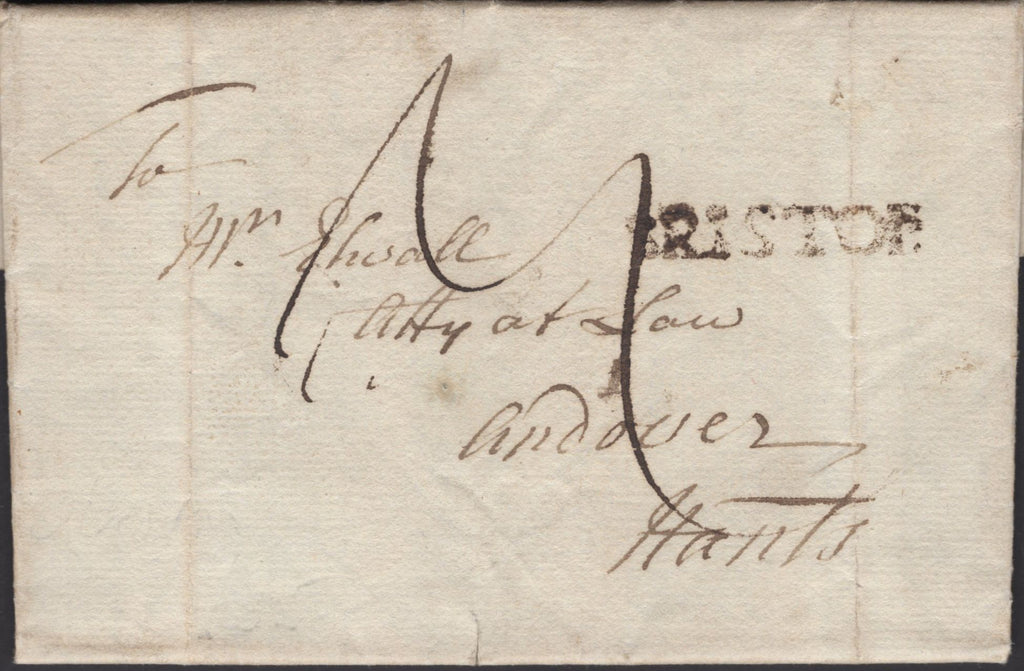 To
Mr. Elwall
BRISTOL
Atty at Law
Andover
Hants